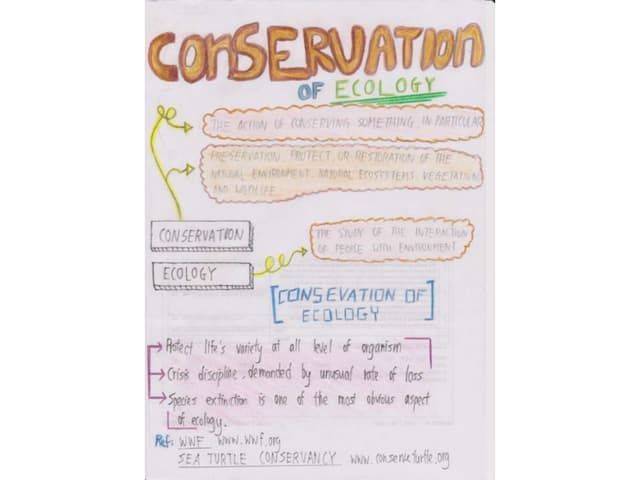 CONSERVATION
OF ECOLOGY
THE ACTION OF CONSERVING SOMETHING IN PARTICULAR
PRESERVATION, PROTECT, OR RESTORATION OF THE
NATURAL ENVIRONMENT, NATURAL ECOSYSTEMS, VEGETATION
AND WILDLIFE
CONSERVATION
THE STUDY OF THE INTERACTION
OF PEOPLE WITH ENVIRONMENT
ECOLOGY
[CONSEVATION OF
ECOLOGY]
Protect life's variety at all level of organism
Crisis discipline, demanded by unusual rate of loss
Species extinction is one of the most obvious aspect
of ecology.
Ref: WWF www.wwf.org
SEA TURTLE CONSERVANCY www.conserveturtle.org